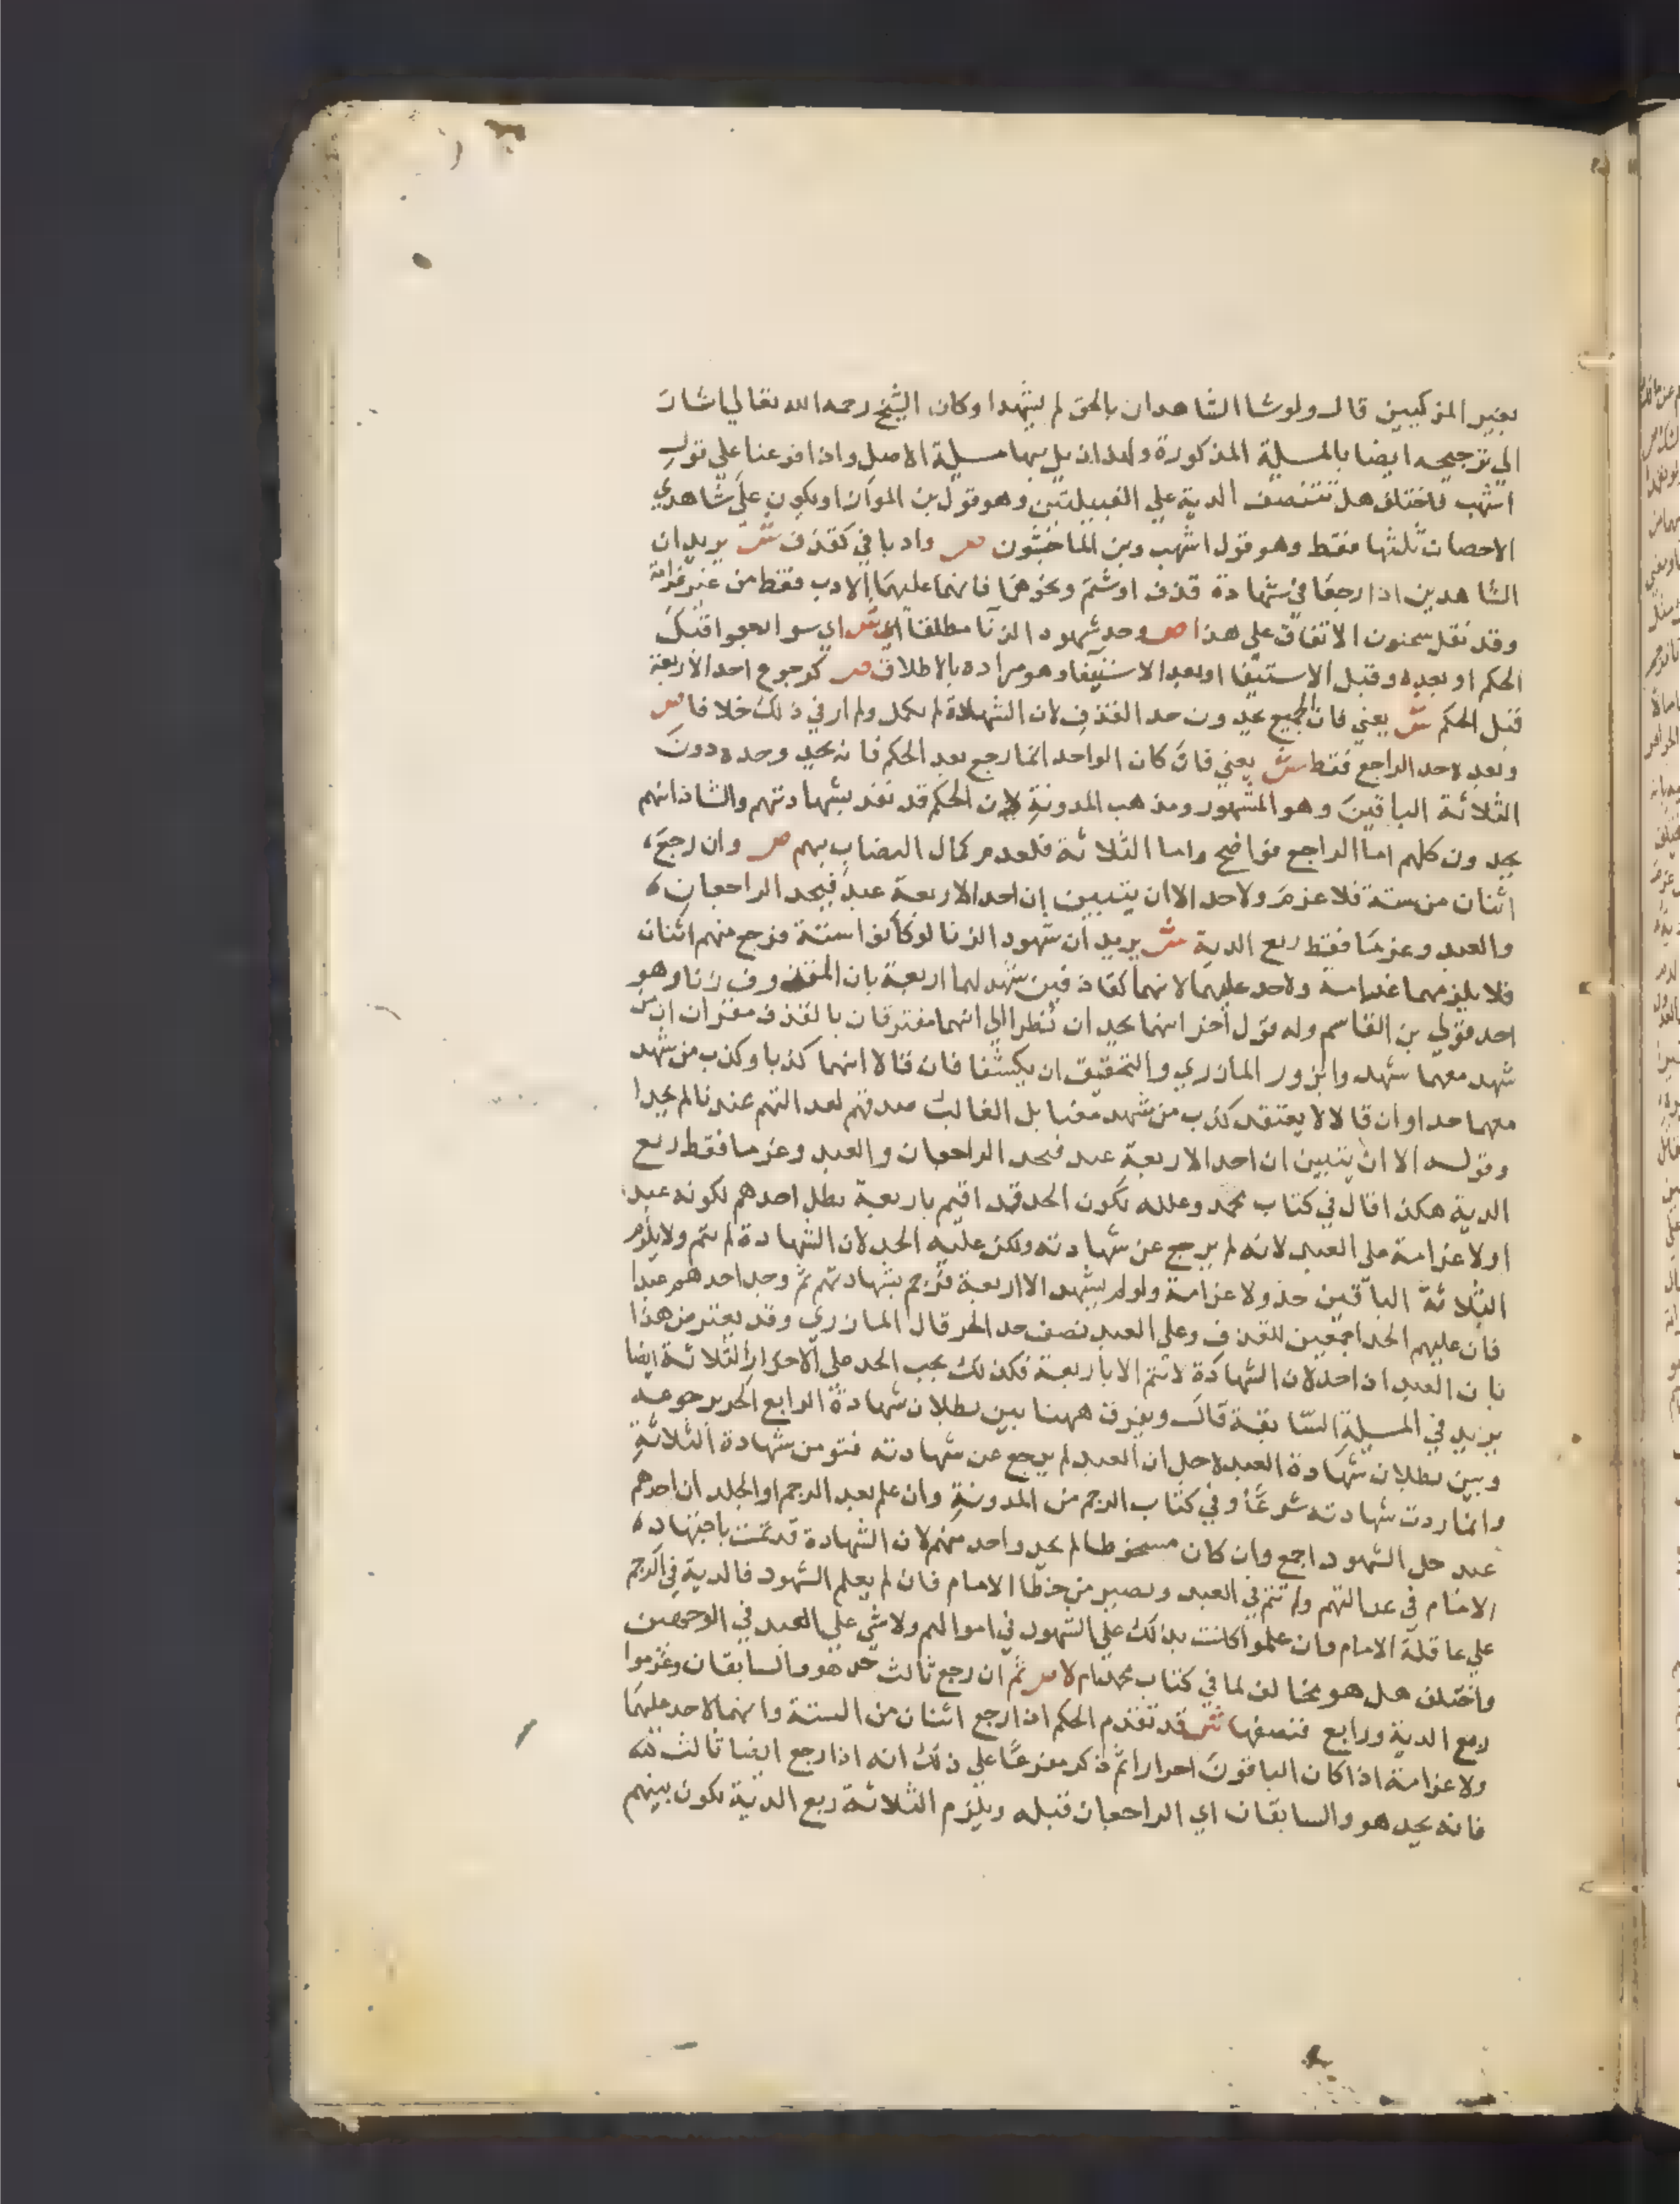 بغير المزكيين قال ولو شا الشاهدان بالحق لم يشهدا وكان الشيخ رحمه الله تعالي اشار
الي ترجيحه ايضا بالمسيلة المذكورة ولهذا ذيل بها مسيلة الاصل واذا فرعنا علي قول
اشهب فاختلف هل تتنصف الدية علي القبيلتين وهو قول بن المواز او يكون علي شاهدي
الاحصان ثلثها فقط وهو قول اشهب وبن الماجشون ص وادبا في كقذف ش يريد ان
الشاهدين اذا رجعا في شهادة قذف او شتم ونحوهما فانما عليهما الادب فقط من غير غرامة
وقد نقل سحنون الاتفاق علي هذا ص وحد شهود الزنا مطلقا ش اي سوا رجعوا قبل
الحكم او بعده وقبل الاستيفا او بعد الاستيفا وهو مراده بالاطلاق ص كرجوع احد الاربعة
قبل الحكم ش يعني فان الجميع يحدون حد القذف لان الشهادة لم تكمل ولم ار في ذلك خلافا ص
وبعده حد الراجع فقط ش يعني فان كان الواحد انما رجع بعد الحكم فانه يحد وحده دون
الثلاثة الباقين وهو المشهور ومذهب المدونة لان الحكم قد نفذ بشهادتهم والشاذ انهم
يحدون كلهم اما الراجع فواضح واما الثلاثة فلعدم كمال النصاب بهم ص وان رجع
اثنان من ستة فلا غرم ولا حد الا ان يتبين ان احد الاربعة عبد فيحد الراجعان
والعبد وغرما فقط ربع الدية ش يريد ان شهود الزنا لو كانوا ستة فرجع منهم اثنان
فلا يلزمهما غرامة ولا حد عليهما لانهما كقاذفين شهد لهما اربعة بان المقذوف زنا وهو
احد قولي بن القاسم وله قول اخر انهما يحدان نظرا الي انهما مفترقان بالقذف مقران ان من
شهد معهما شهد وا بزور المازري والتحقيق ان يكشفا فان قالا انهما كذبا وكذب من شهد
معهما حدا وان قالا لا يعتقد كذب من شهد معنا بل الغالب صدقهم لعدالتهم عندنا لم يحدا
وقوله الا ان يتبين ان احد الاربعة عبد فيحد الراجعان والعبد وغرما فقط ربع
الدية هكذا قال في كتاب محمد وعلله بكون الحد قد اقيم باربعة بطل احدهم بكونه عبدا
اولا غرامة علي العبد لانه لم يرجع عن شهادته ولكن عليه الحد لان الشهادة لم تتم ولا يلزم
الثلاثة الباقين حد ولا غرامة ولو لم يشهد الا اربعة فرجم بشهادتهم ثم وجد احدهم عبدا
فان عليهم الحد اجمعين للقذف وعلي العبد نصف حد الحر قال المازري وقد يعتر من هذا
بان العبد اذا حد لان الشهادة لا تتم الا باربعة فكذلك يجب الحد علي الاحرار الثلاثة ايضا
يريد في المسيلة السابقة قال ويفرق ههنا بين بطلان شهادة الرابع الحر برجوعه
وبين بطلان شهادة العبد لاجل ان العبد لم يرجع عن شهادته فتوهن شهادة الثلاثة
وانما ردت شهادته شرعا وفي كتاب الرجم من المدونة وان علم بعد الرجم او الجلد ان احدهم
عبد حد الشهود اجمع وان كان مسخوطا لم يحد واحد منهم لان الشهادة قد تمت باجتهاد
الامام في عدالتهم ولم تتم في العبد ويصير من خطا الامام فان لم يعلم الشهود فالدية في الرجم
علي عاقلة الامام وان علموا كانت بذلك علي الشهود في اموالهم ولا شي علي العبد في الوجهين
واختلف هل هو مخالف لما في كتاب محمد ام لا ص ثم ان رجع ثالث حد هو والسابقان وغرموا
ربع الدية ورابع فنصفها ش قد تقدم الحكم اذا رجع اثنان من الستة وانهما لا حد عليهما
ولا غرامة اذا كان الباقون احرارا ثم ذكر مفرعا علي ذلك انه اذا رجع ايضا ثالث
فانه يحد هو والسابقان اي الراجعان قبله ويلزم الثلاثة ربع الدية تكون بينهم